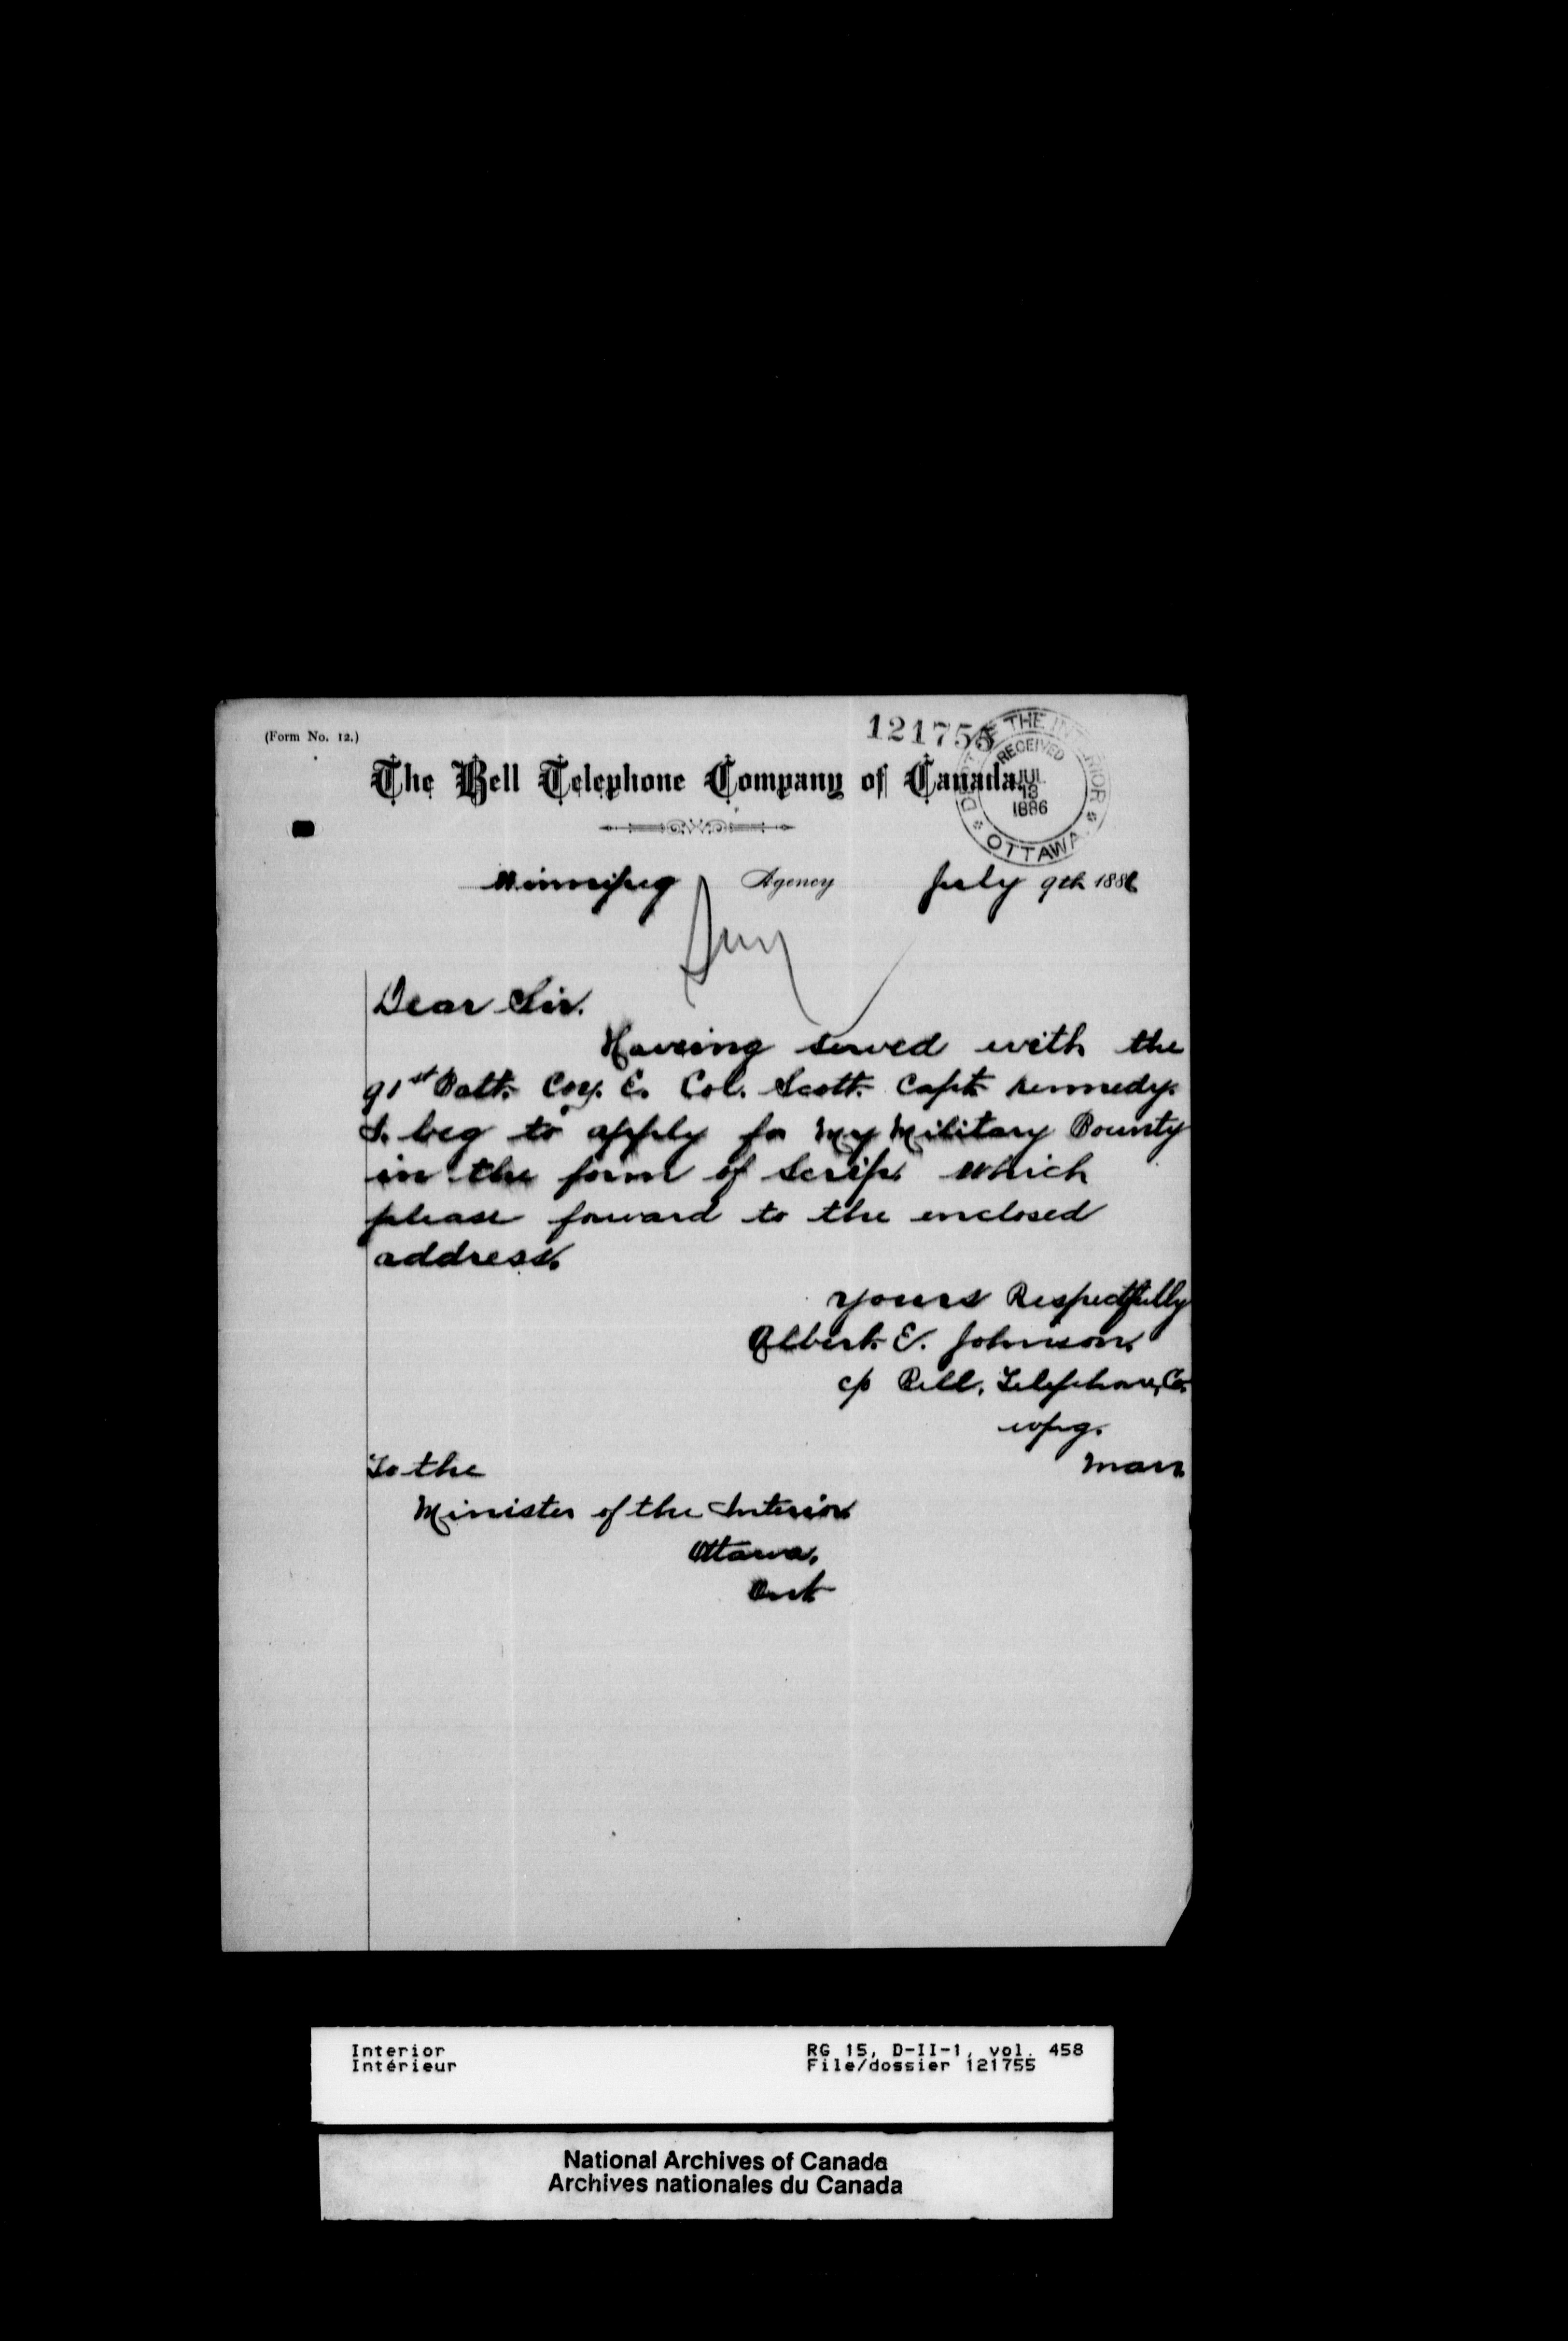 (Form No. 12.)
121755
DEPT OF THE INTERIOR
RECEIVED
JUL
13
1886
OTTAWA
The Bell Telephone Company of Canada.
Winnipeg Agency July 9th 1886
Dear Sir.
Haveing served with the
91st Batt. Coy. E. Col. Scott. Capt. Kennedy.
I. beg to apply for My Military Bounty
in the form of Scrip. Which
please forward to the enclosed
address.
Yours Respectfully
Albert. E. Johnson.
c/o Bell. Telephone, Co.
wpg.
Man
To the
Minister of the Interior
Ottawa.
Ont
Interior
Intérieur
RG 15, D-II-1, vol. 458
File/dossier 121755
National Archives of Canada
Archives nationales du Canada